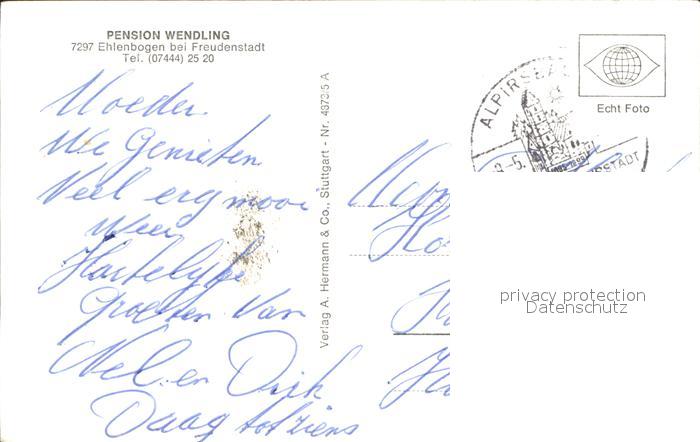 PENSION WENDLING
7297 Ehlenbogen bei Freudenstadt
Tel. (07444) 25 20
Moeder.
We Genieten
Veel erg mooi
weer
Hartelijke
Groeten Van
Nel. en Dirk
Daag tot ziens
Verlag A. Hermann & Co., Stuttgart - Nr. 4873/5 A
ALPIRSBA
Echt Foto
privacy protection
Datenschutz